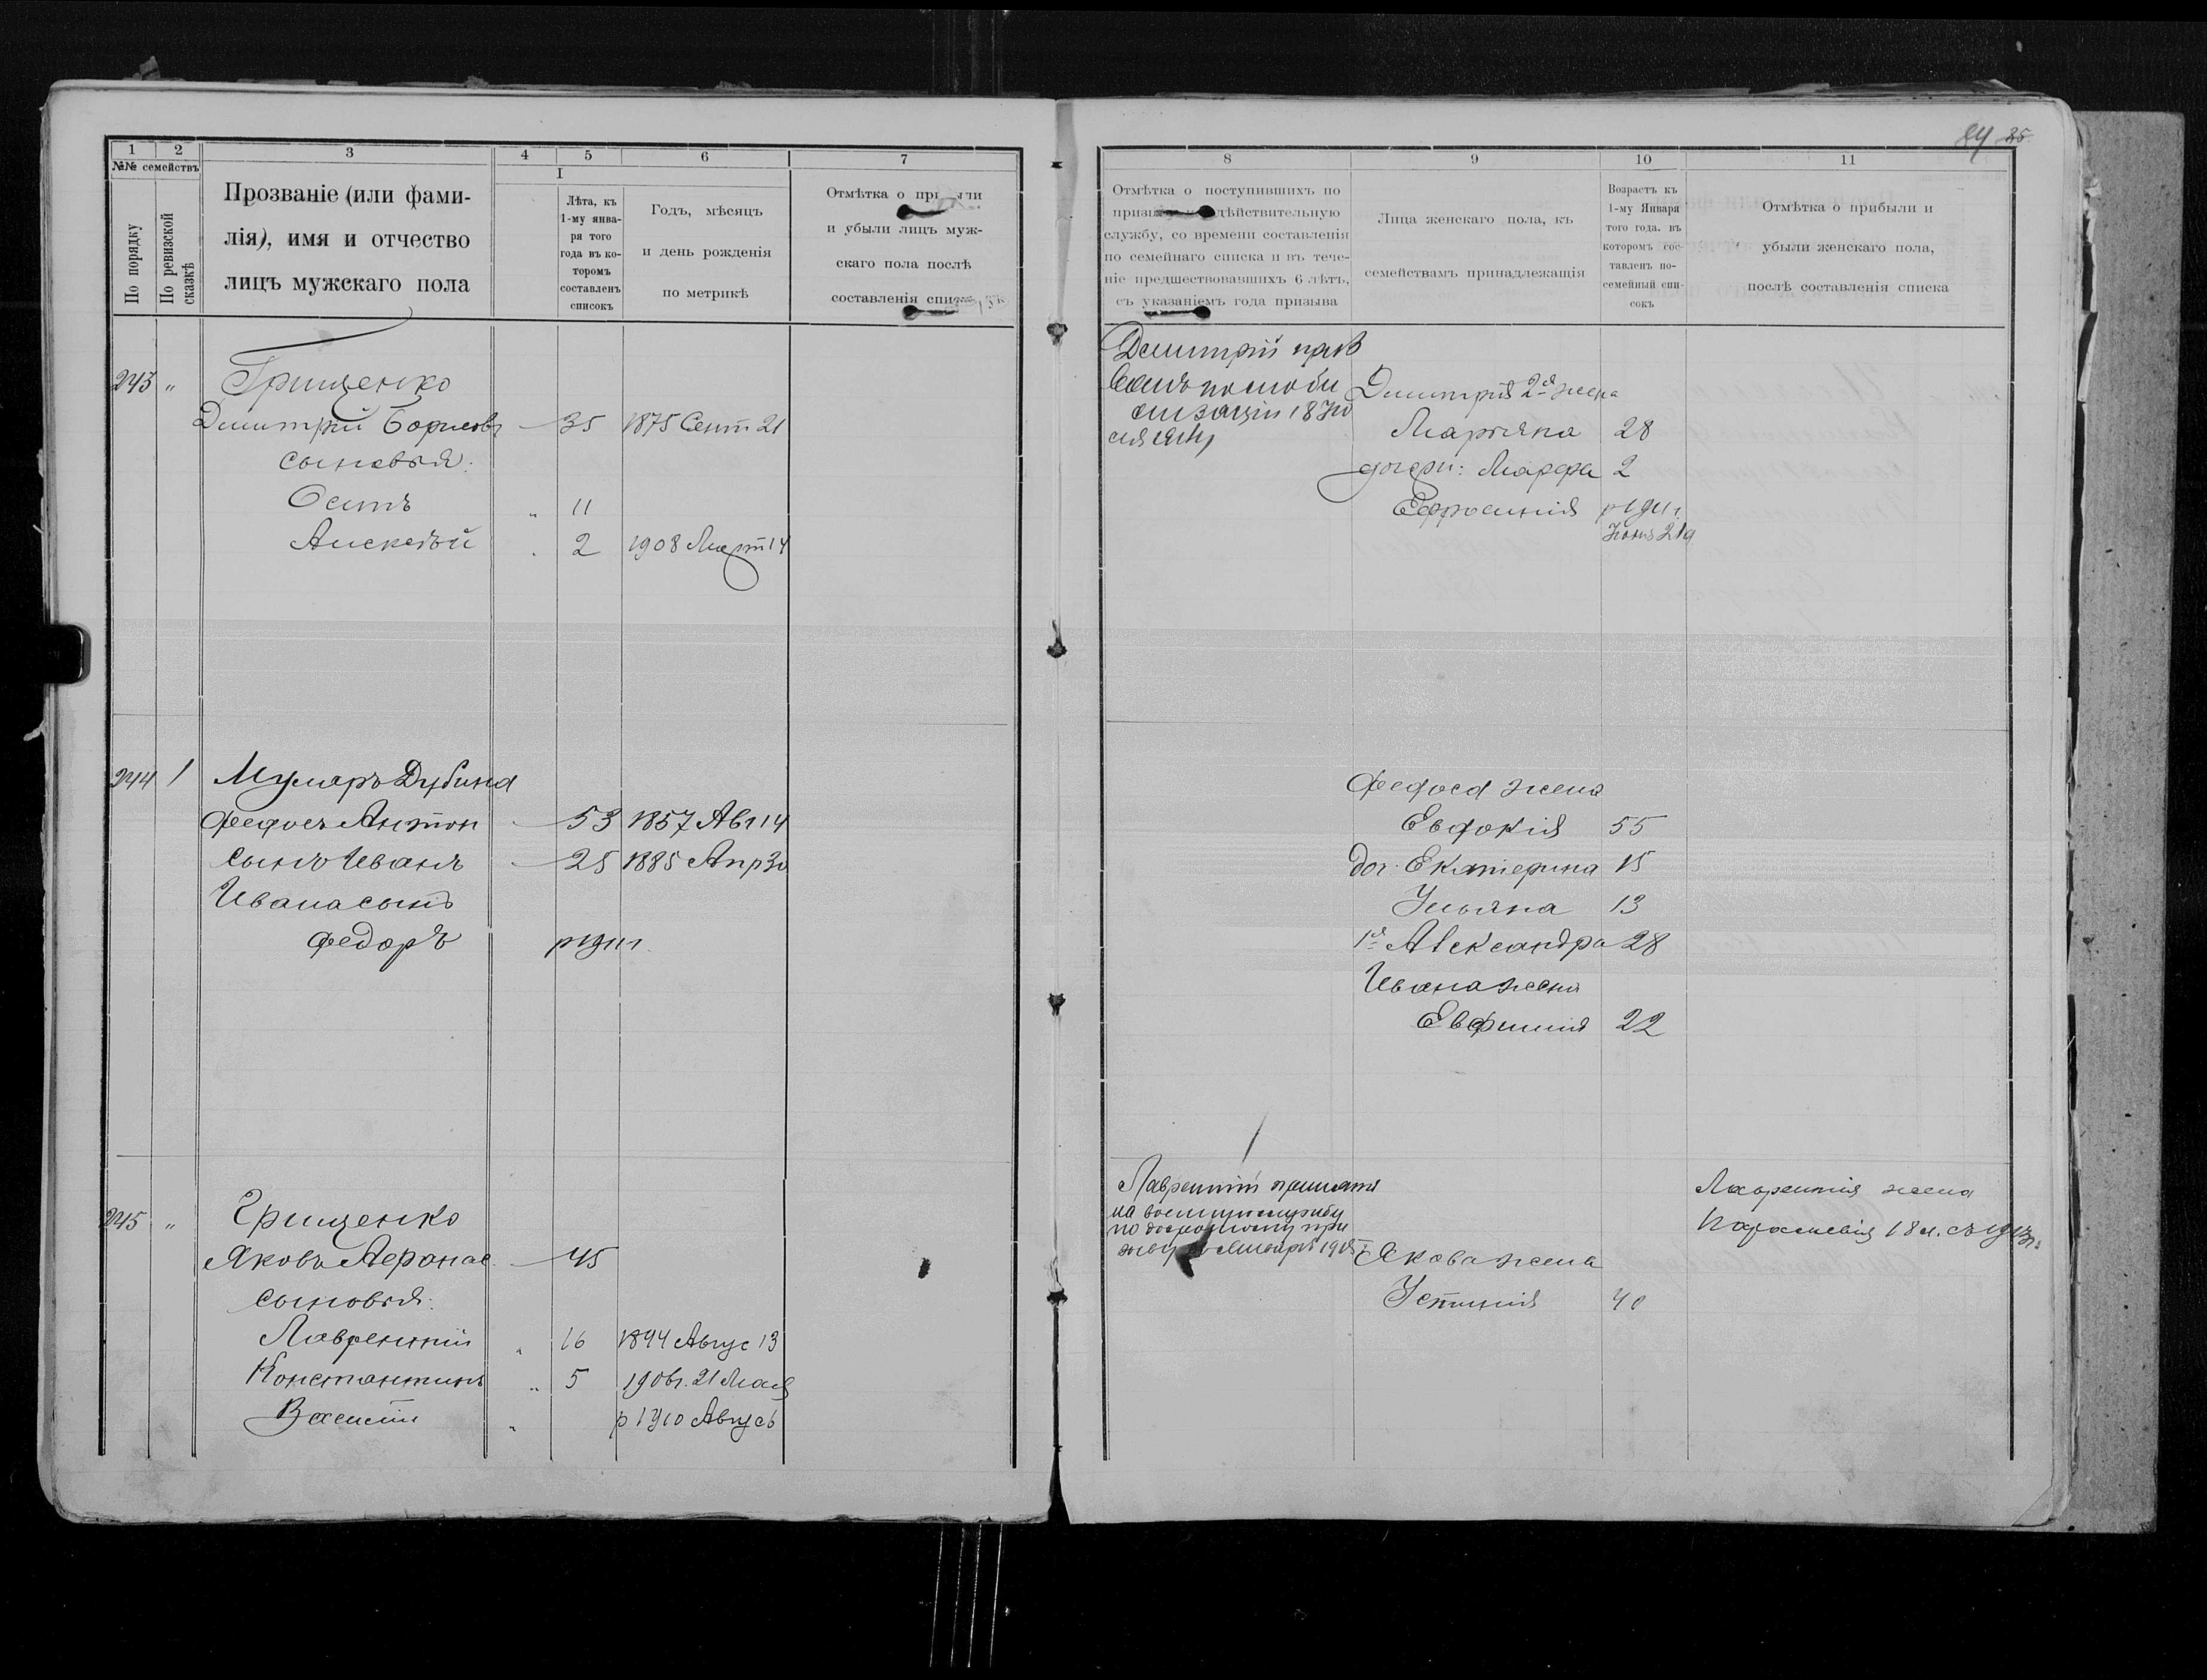 1
2
3
4
5
6
7
I
№№ семействъ
По порядку
По ревизской сказкѣ
Прозваніе (или фами-
лія), имя и отчество
лицъ мужскаго пола
Лѣта, къ
1-му янва-
ря того
года въ ко-
торомъ
составленъ
списокъ
Годъ, мѣсяцъ
и день рожденія
по метрикѣ
Отмѣтка о
и убыли лицъ муж-
скаго пола послѣ
составленія
243 " Грищенко
Дмитрій Борисовъ 35 1875 Сент 21
сыновья:
Осипъ " 11
Алексѣй " 2 1908 Март 14
244 1 Мушаръ Дубина
Федосъ Антон 53 1857 Авг 14
сынъ Иванъ 25 1885 Апр 30
Ивана сынъ
Федоръ р 1911
245 " Грищенко
Яковъ Афанас 45
сыновья:
Лаврентій " 16 1894 Авгус 13
Константинъ " 5 190 г. 21 Мая
" р 1910 Августъ
84 85
8
9
10
11
Отмѣтка о поступившихъ по
дѣйствительную
службу, со времени составленія
по семейнаго списка и въ тече-
ніе предшествовавшихъ 6 лѣтъ,
съ указаніемъ года призыва
Лица женскаго пола, къ
семействамъ принадлежащія
Возрастъ къ
1-му Января
того года, въ
которомъ сос-
тавленъ по-
семейный спи-
сокъ
Отмѣтка о прибыли и
убыли женскаго пола,
послѣ составленія списка
Дмитрій приз
ванъ по моби
лизаціи 18 Ію
ля 1914
Дмитрія 2я жена
Марьяна 28
дочери: Марфа 2
Ефросинія р 1911 г.
Іюня 21 д
Федоса жена
Евдокія 55
доч. Екатерина 15
Ульяна 13
1я Александра 28
Ивана жена
Евфимія 22
Лаврентій принятъ
на военную службу
по досрочному при
зыву Января 1915 г.
Якова жена
Устинія 40
Лаврентія жена
Параскевія 18 л. съ 1913 г.